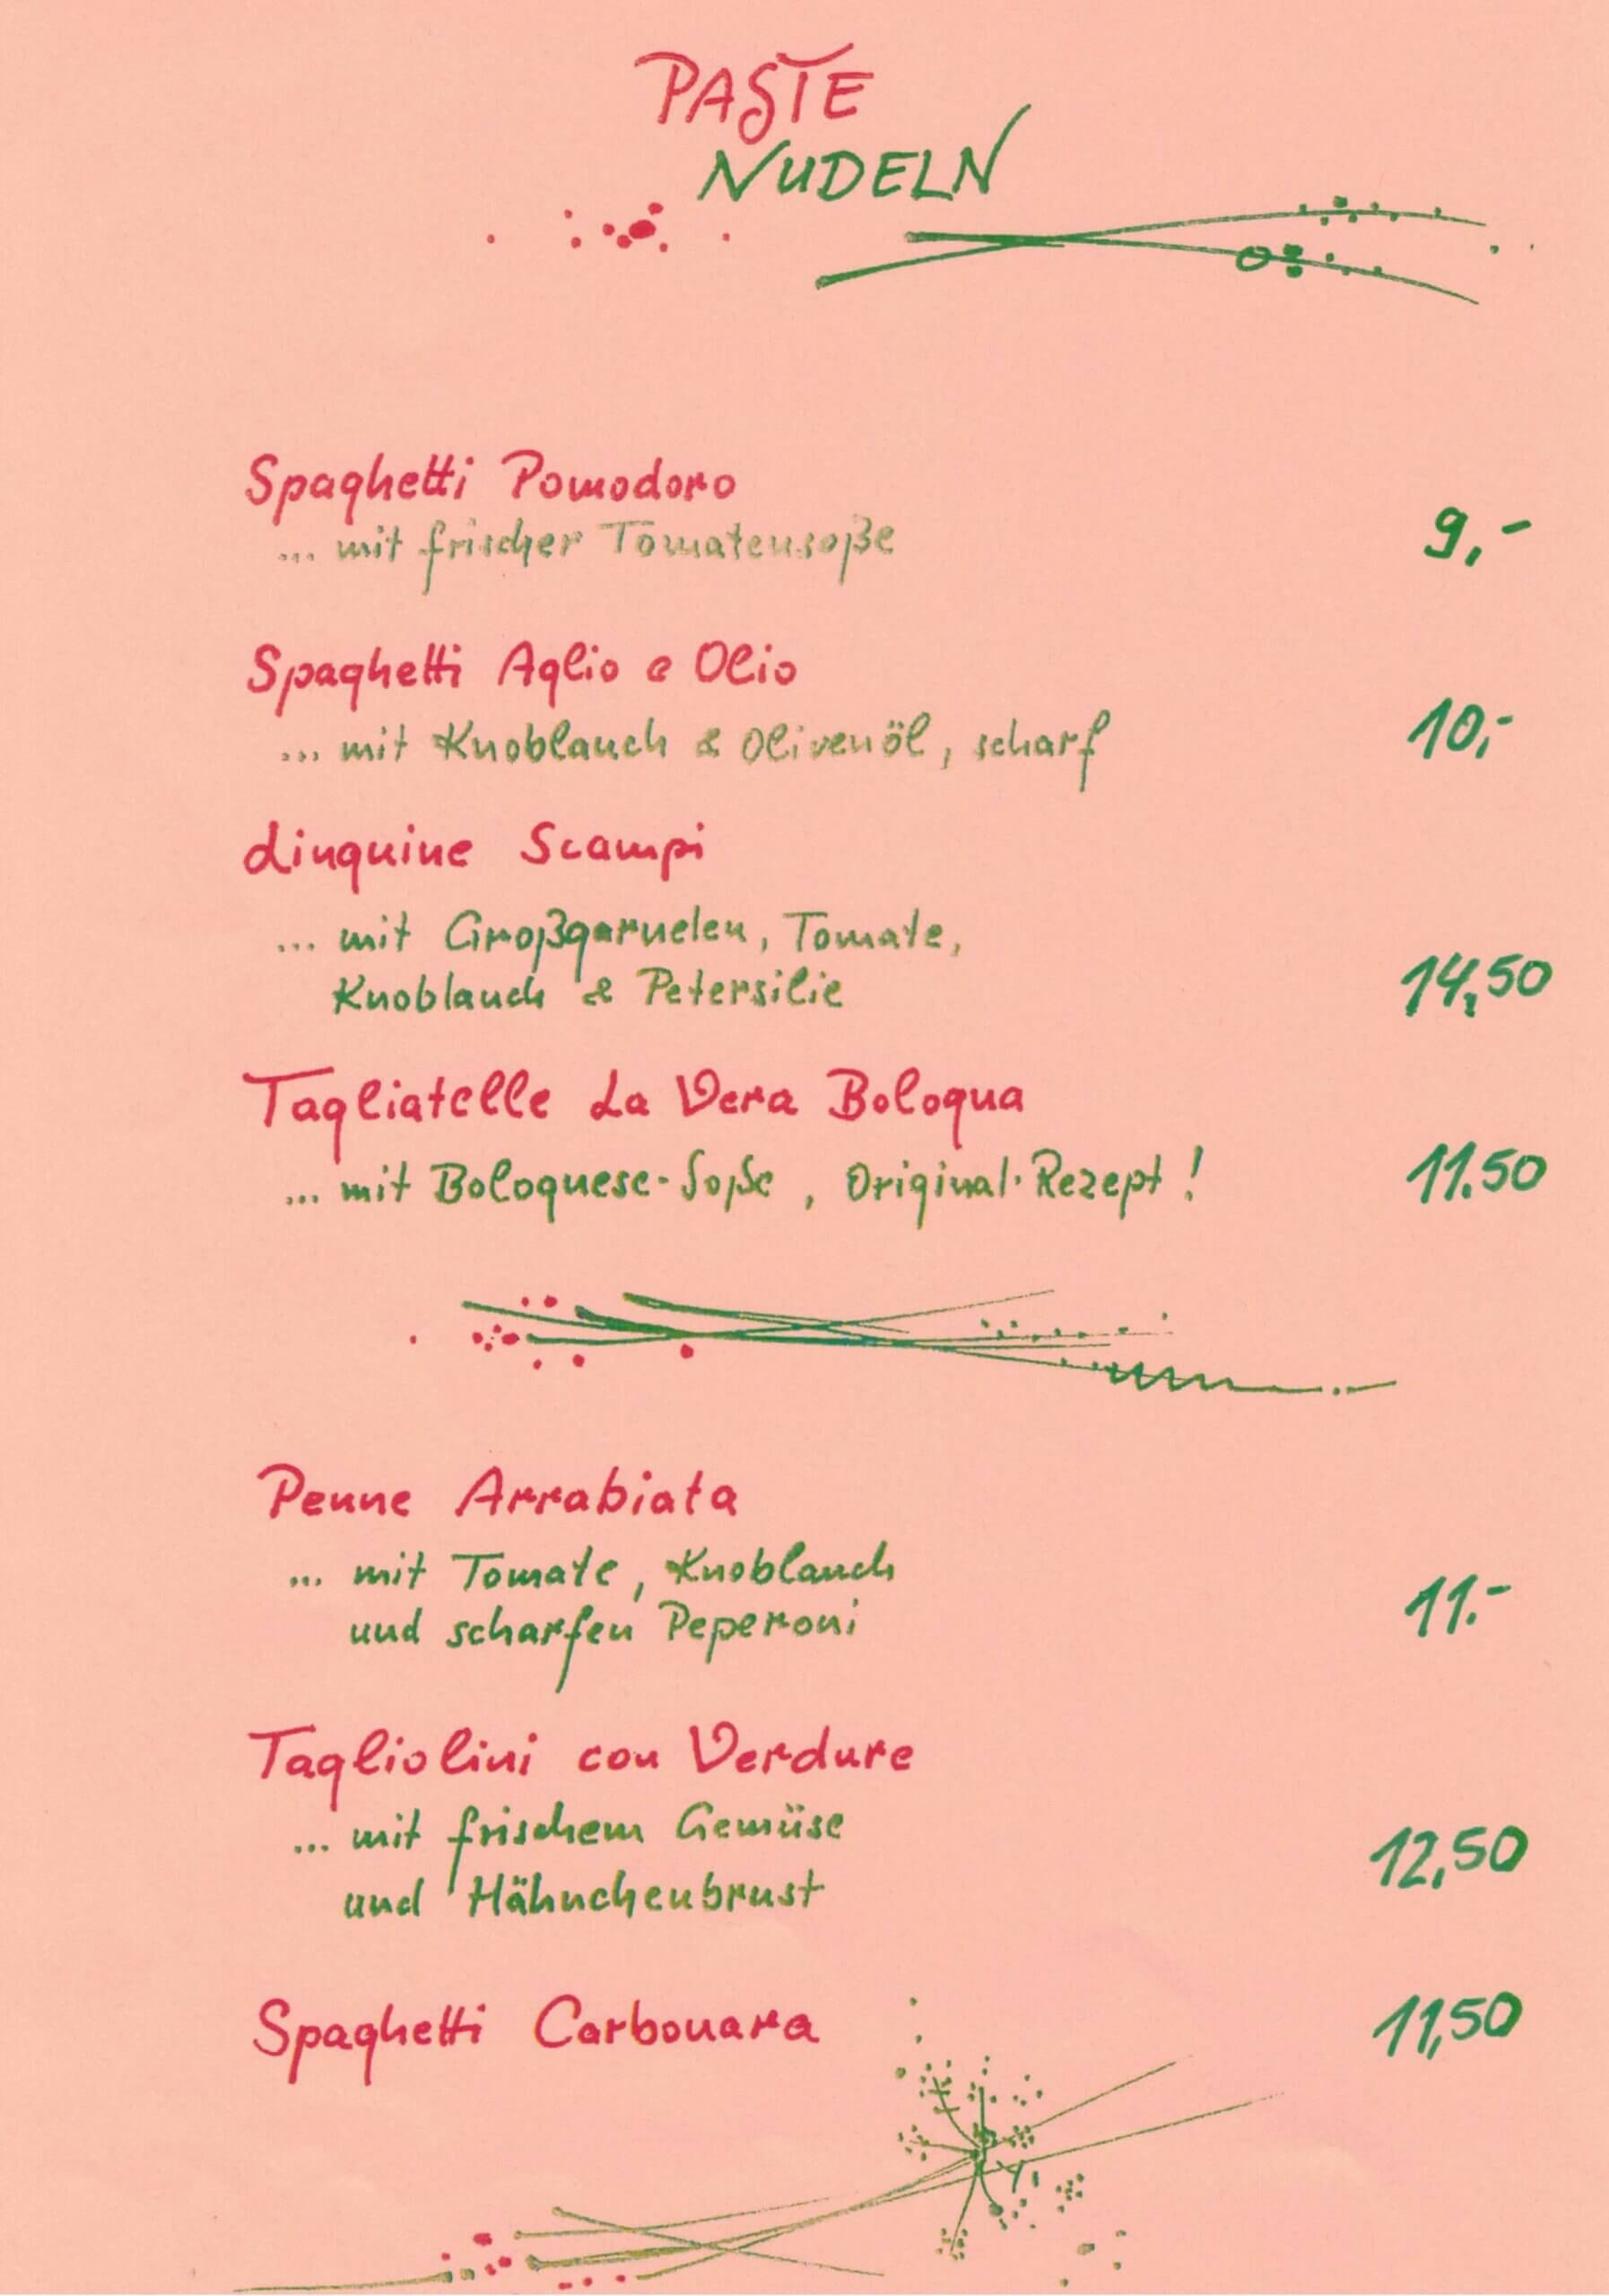 PASTE
NUDELN
Spaghetti Pomodoro
... mit frischer Tomatensoße
9,-
Spaghetti Aglio e Olio
... mit Knoblauch & Olivenöl, scharf
10,-
Linguine Scampi
... mit Großgarnelen, Tomate,
Knoblauch & Petersilie
14,50
Tagliatelle La Vera Bologna
... mit Bolognese-Soße, Original-Rezept!
11.50
Penne Arrabiata
... mit Tomate, Knoblauch
und scharfen Peperoni
11.-
Tagliolini con Verdure
... mit frischem Gemüse
und Hähnchenbrust
12,50
Spaghetti Carbonara
11,50